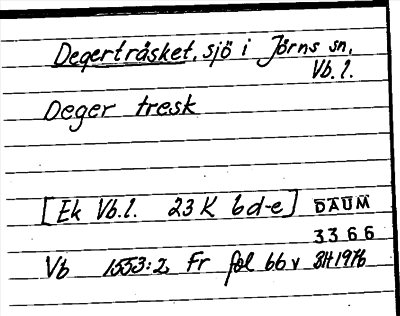 Degerträsket, sjö i Jörns sn,
Vb. l.
Deger tresk
[Ek Vb.l. 23 K 6 d-e] DAUM
3366
Vb 1553:2, Fr fol 66 v BH 1976